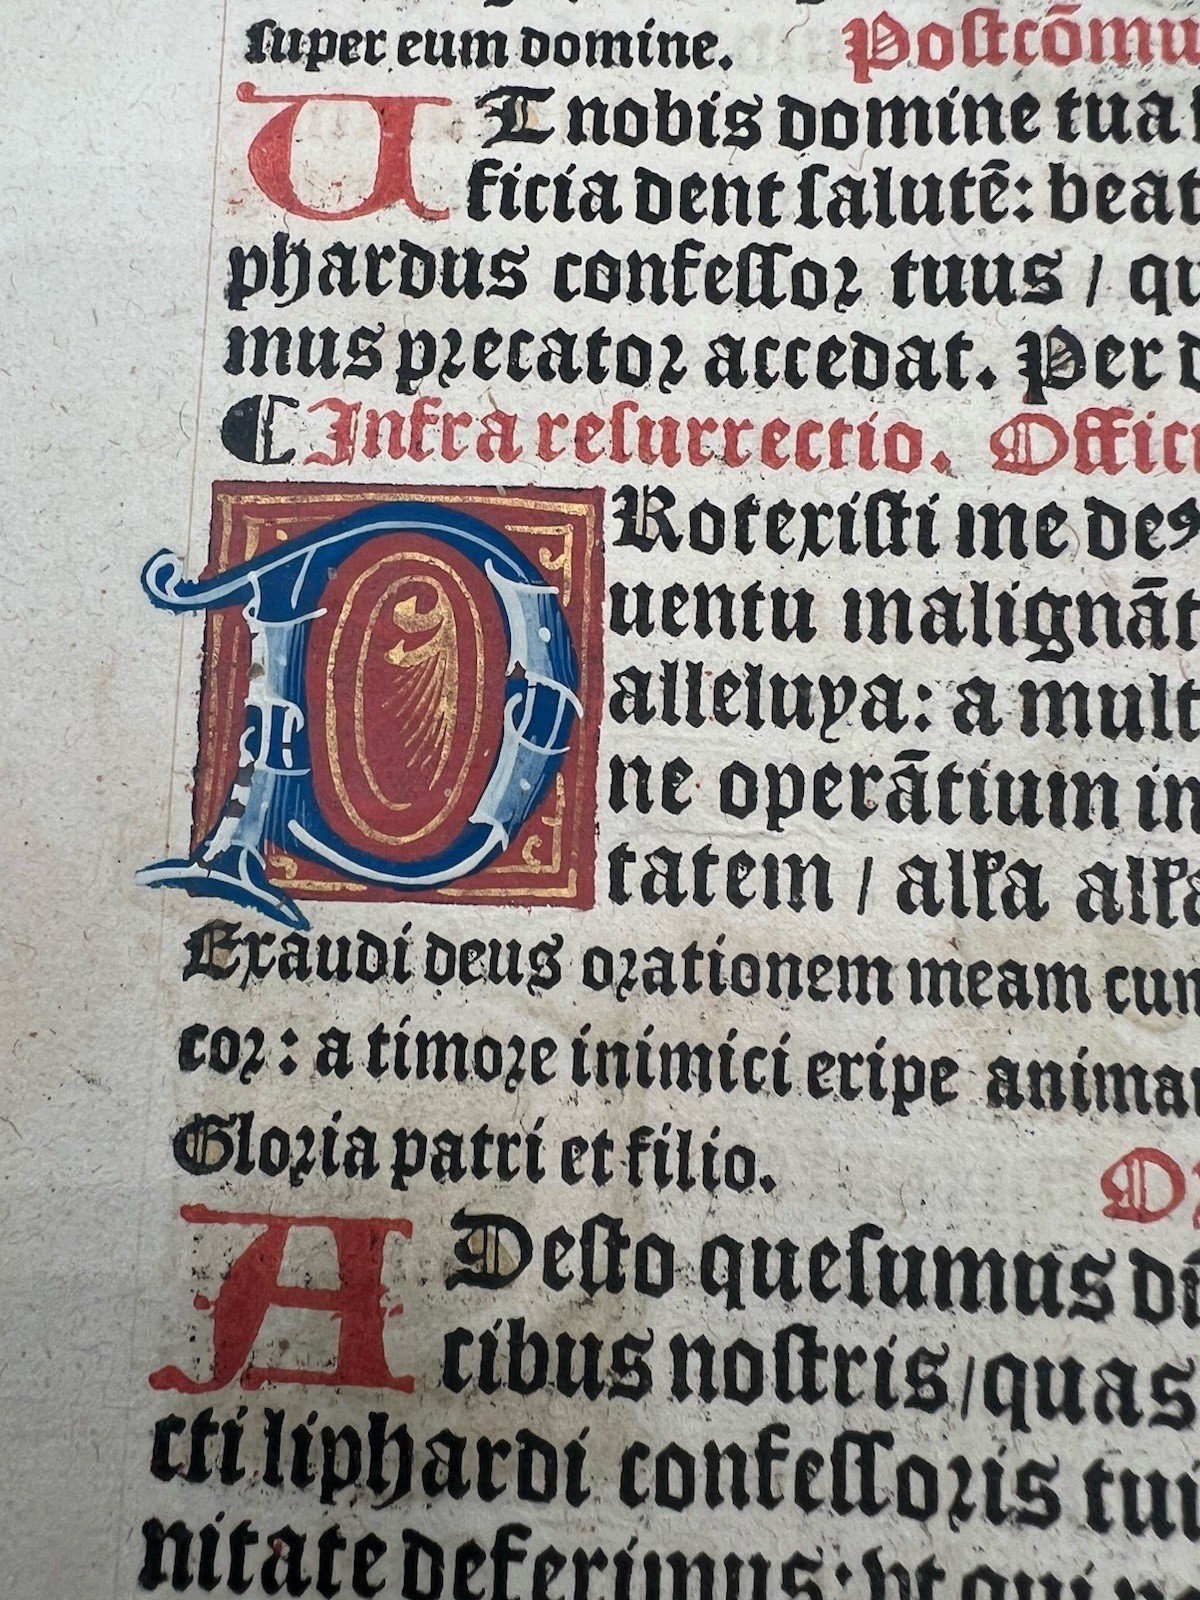 super eum domine. Postcōmu
UT nobis domine tua
ficia dent salutē: beat
phardus confessor tuus / qu
mus precator accedat. Per d
¶ Infra resurrectio. Offici
PRotexisti me deꝯ
uentu malignāt
alleluya: a mult
ne operātium in
tatem / all'a all'a
Exaudi deus orationem meam cum
cor: a timore inimici eripe animam
Gloria patri et filio.
ADesto quesumus dn̄
cibus nostris / quas
cti liphardi confessoris tui
nitate deferimus: vt qui